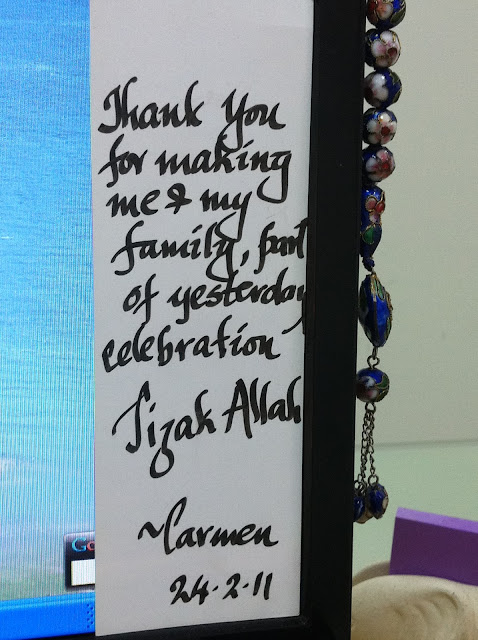 Thank You
for making
me & my
family, part
of yesterday
celebration
Jizak Allah
~Carmen
24-2-11
Go